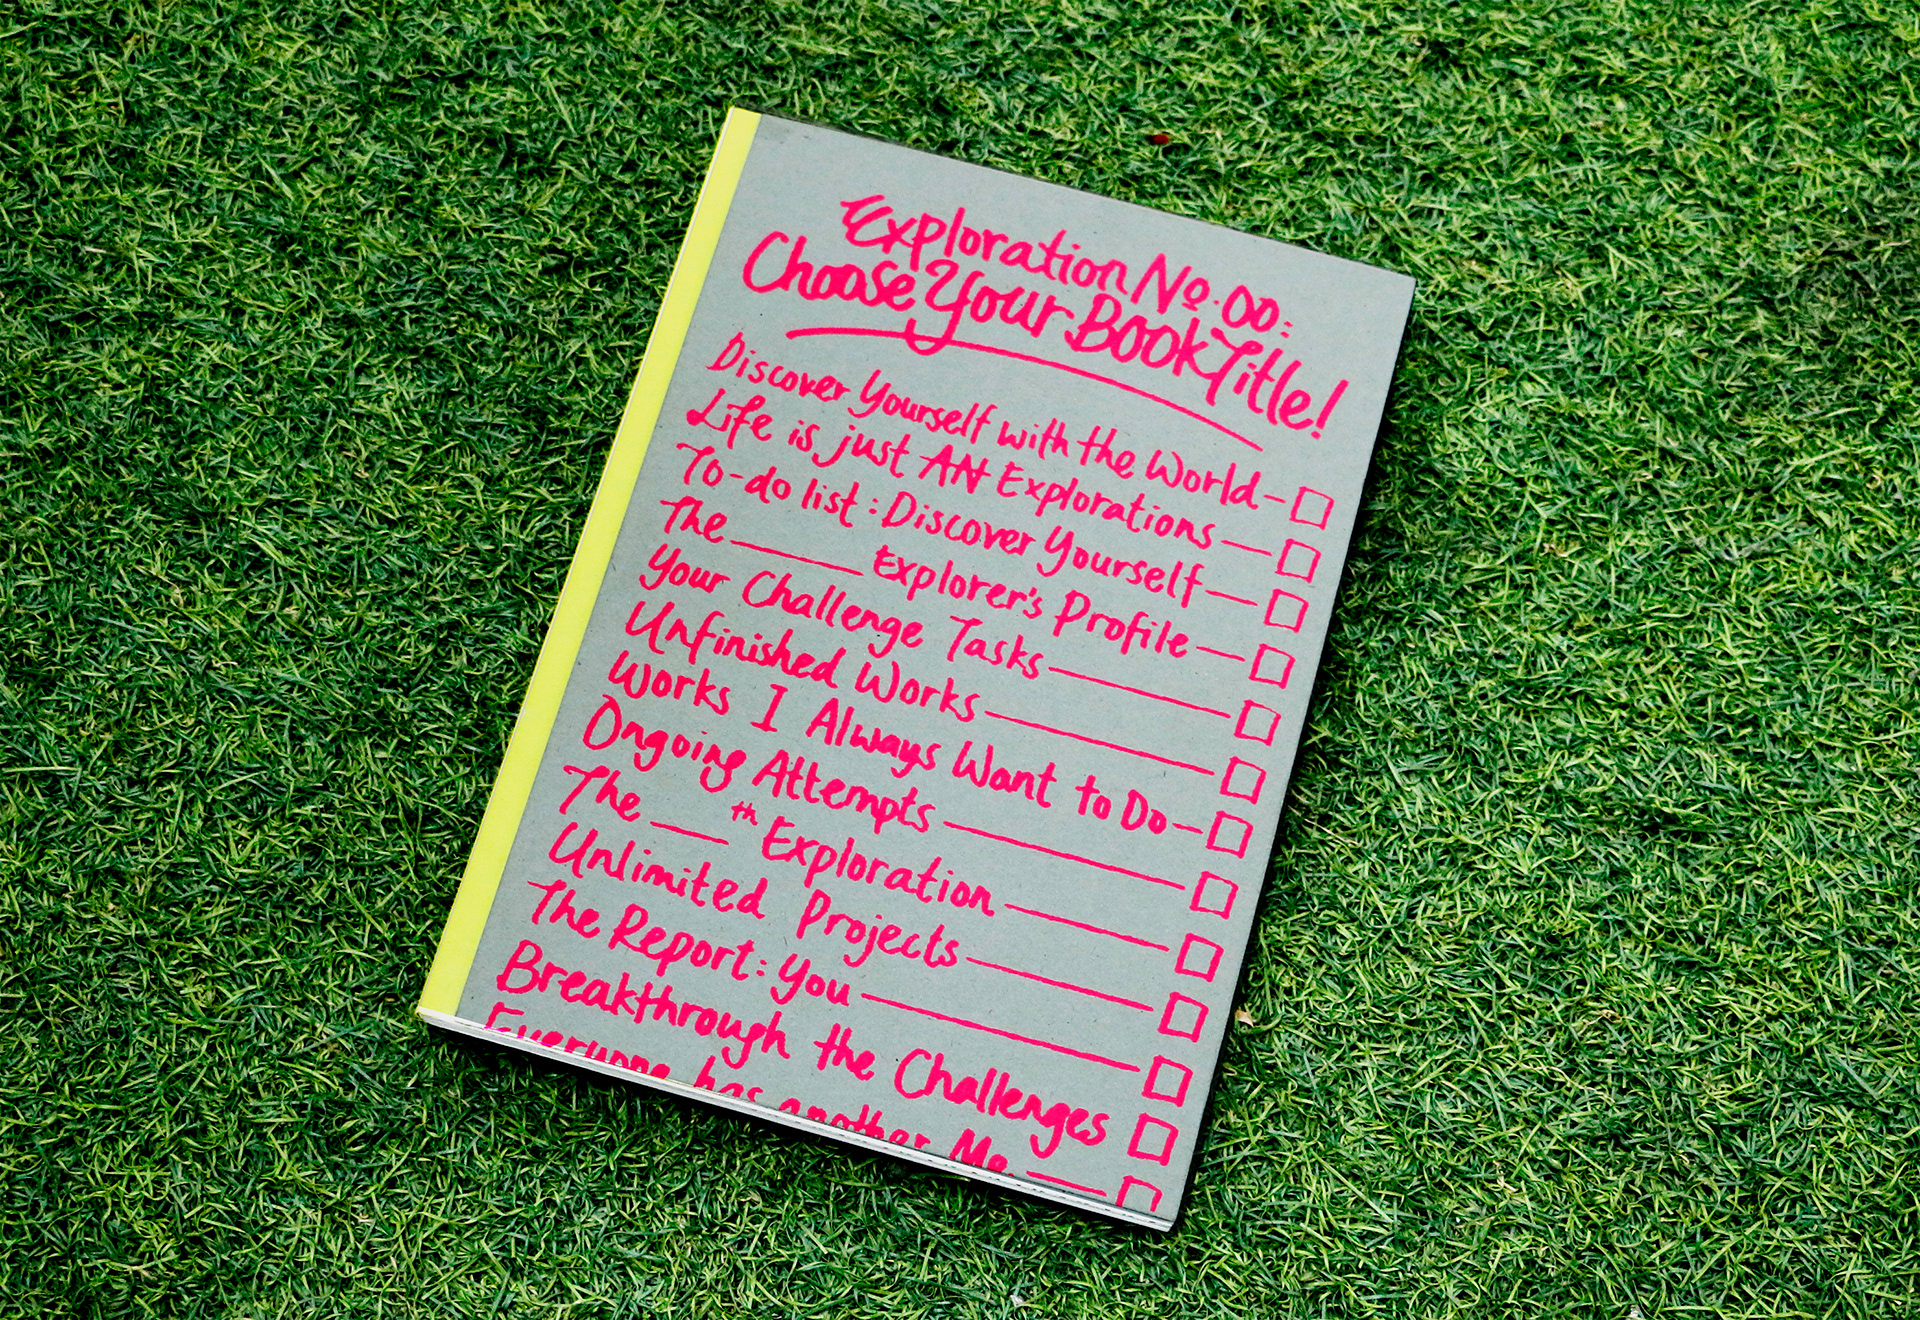 Exploration No.00:
Choose Your Book Title!
Discover Yourself with the World
Life is just AN Explorations
To-do list: Discover Yourself
The ______ Explorer's Profile
Your Challenge Tasks
Unfinished Works
Works I Always Want to Do
Ongoing Attempts
The ____th Exploration
Unlimited Projects
The Report: You
Breakthrough the Challenges
Everyone has another Me